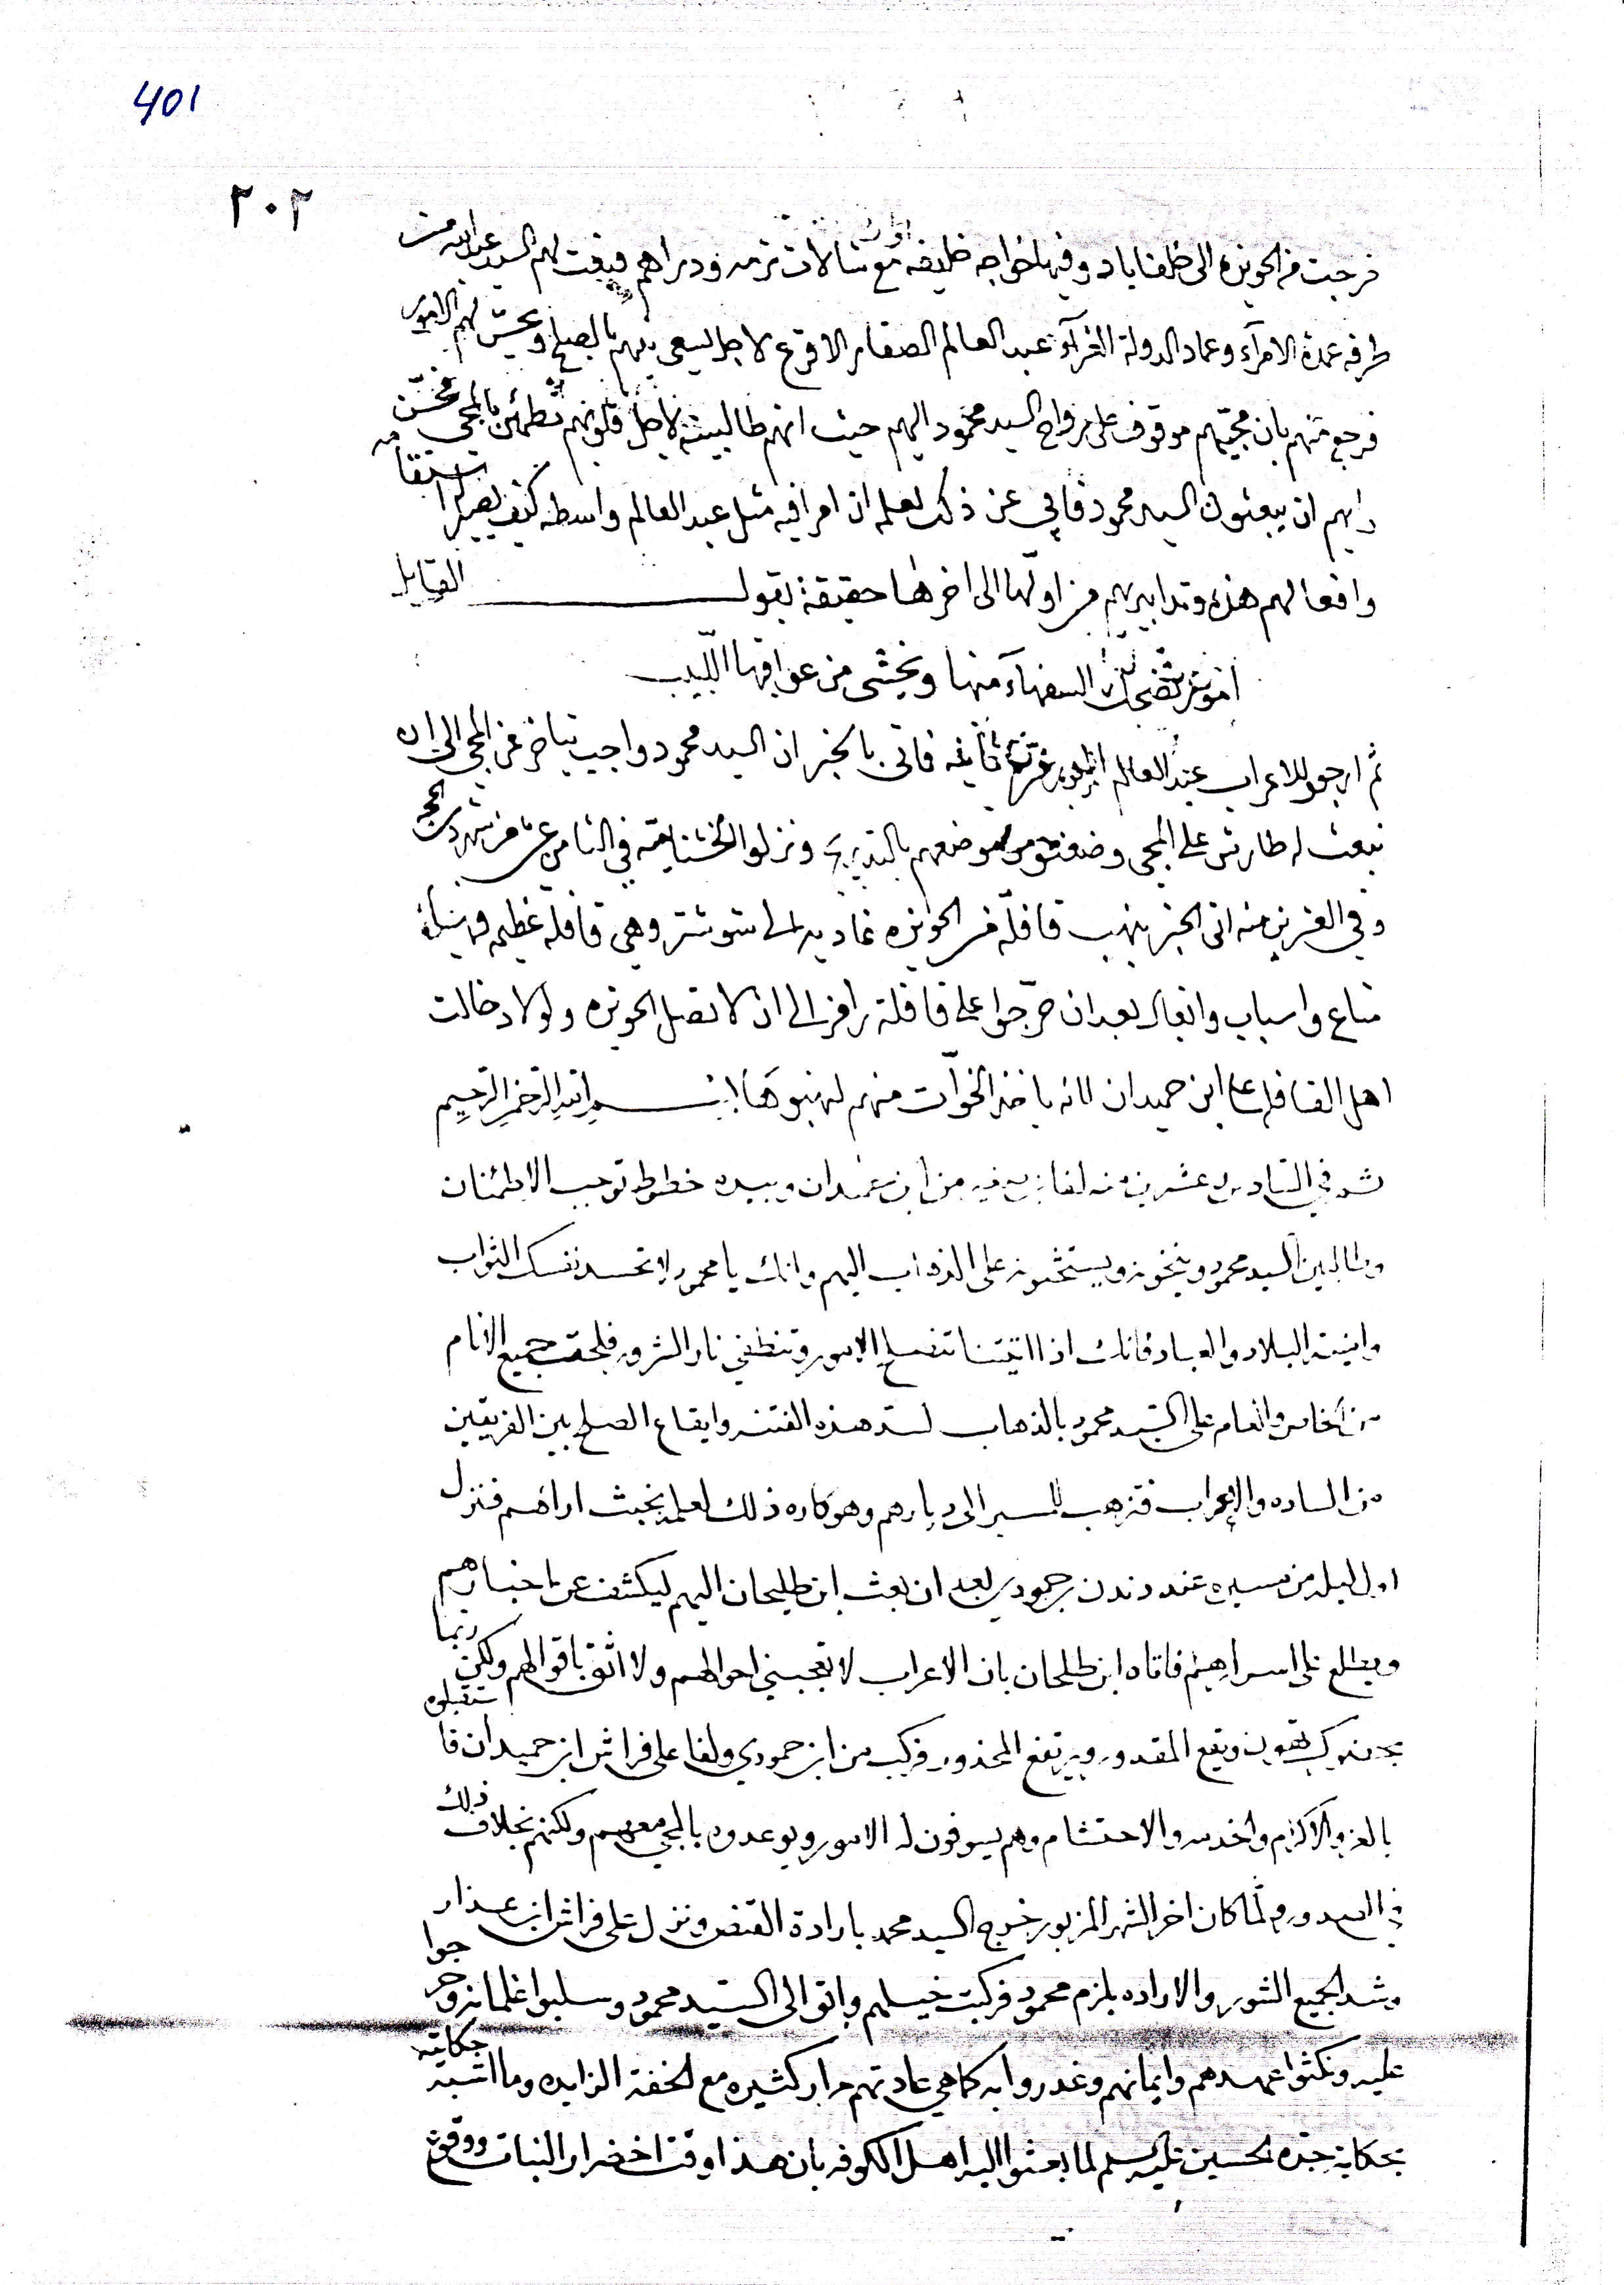 401
٢٠٢
فرجت من الحويزه الى خلفاباد وفيها خواجه خليفه مع شالات ترمه ودراهم فبعث لهم السيد عبدالله من
طرفه عمدة الامرآء وعماد الدولة الغرآء عبد العالم الصفار الاقرع لاجل يسعى بينهم بالصلح و لهم الامور
فرجع منهم بان مجيّهم موقوف على رواح السيد محمود اليهم حيث انهم طالبينه لاجل قلوبهم تطمئن بالمجي
رايهم ان يبعثون السيد محمود فابى عن ذلك لعلمه ان امرا فيه مثل عبد العالم واسطه كيف يصير
وافعالهم هذه وتدابيرهم من اولها الى اخرها حقيقة بقول القايل
امور تضحك السفهآء منها ويخشى من عواقبها اللبيب
ثم ارجعوا للاعراب عبد العالم ثانيه فاتى بالخبر ان السيد محمود واجب يتاخر عن المجي الى ان
نبعث له طارش على المجي من موضعهم بالتدريج ونزلوا في الثامن عشر من شهر ذي الحجه
وفي العشرين منه اتى الخبر بنهب قافلة من الحويزه غاديه الى شوشتر وهي قافله عظيمه
متاع واسباب واثقال بعد ان حرّجوا على قافلة الى ان لا تصل الحويزه ولولا دخالت
اهل القافله على ابن حميدان لانه ياخذ الخوّات منهم لنهبوها بسم الله الرحمن الرحيم
ثم في السادس عشرين منه لفا من ابن وبيده خطوط توجب الاطمئنان
وطالبين السيد محمود وينخونه ويستحثونه على الذهاب اليهم وانك يا محمود لا تحسد نفسك الثواب
البلاد والعباد فانك اذا اتيتنا تنصلح الامور وتنطفي نار الشرور فلحّت جميع الانام
من الخاص والعام على السيد محمود بالذهاب لسد هذه الفتنه وايقاع الصلح بين الفريقين
من الساده والاعراب للمسير الى ديارهم وهو كاره ذلك لعلمه بخبث اراهم فنزل
اول ليله من مسيره عند دندن بن حمودي بعد ان بعث ابن طليحان اليهم ليكشف عن اخبارهم
ويطلع على اسرارهم فاتاه ابن طلحان بان الاعراب لا تعجبني احوالهم ولا اثق باقوالهم ولكن ربما
ويقع المقدور ويرتفع المحذور فركب من ابن حمودي ولفا على فراش ابن حميدان فاستقبلوه
بالعز والاكرام والخدمه والاحتشام وهم يسوفون له الامور ويوعدوه بالمجي معهم ولكنهم بخلاف ذلك
في الصدور ولما كان اخر الشهر المزبور خرج السيد محمد بارادة القنص ونزل على فراش ابن عذار
وشد الجميع الشور والاراده بلزم محمود فركبت خيلهم واتوا الى السيد محمود وسلبوا غلمانه وخرجوا
عليه ونكثوا عهدهم وايمانهم وغدروا به كما هي عادتهم مرار كثيره مع الخفة الزايده وما اشبه حكايته
بحكاية جده الحسين عليه السلم لما بعثوا اليه اهل الكوفه بان هذا وقت اخضرار النبات